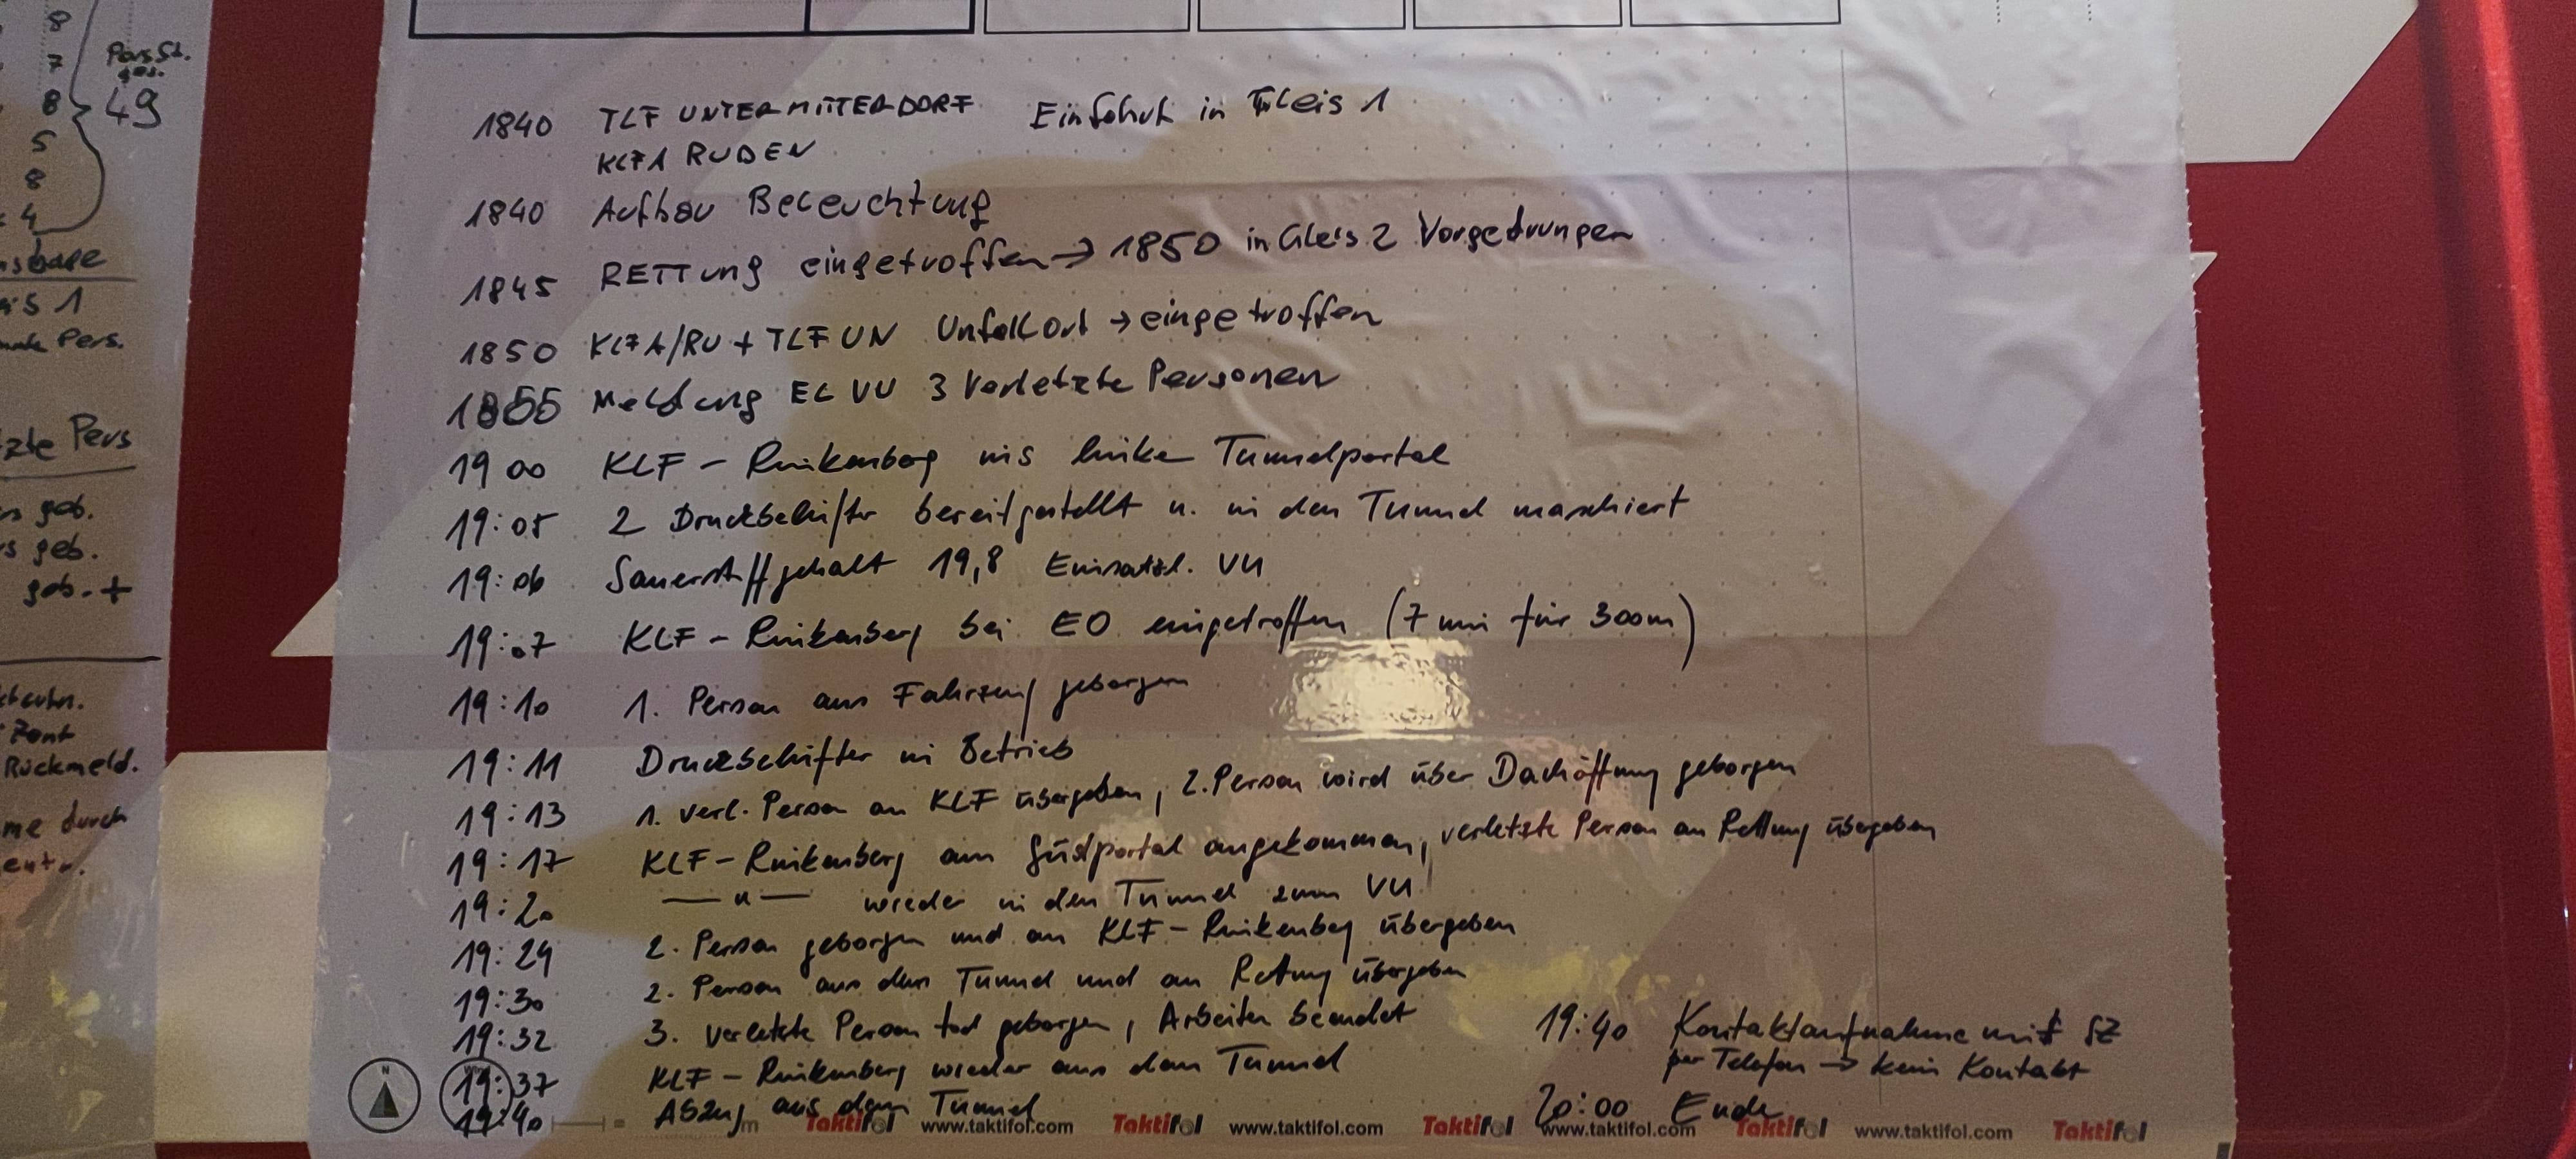 8
7
8
5
8
4
Pers St.
ges.
49
is 1
Pers.
Pers
geb.
geb.
geb. +
Rückmeld.
durch
1840 TLF UNTERMITTERDORF Einfahrt in Gleis 1
KLFA RUDEN
1840 Aufbau Beleuchtung
1845 RETTung eingetroffen → 1850 in Gleis 2 Vorgedrungen
1850 KLFA/RU + TLF UN Unfallort → eingetroffen
1855 Meldung EL VU 3 Verletzte Personen
1900 KLF - Rinkenberg ins linke Tunnelportal
19:05 2 Druckbelüfter bereitgestellt u. in den Tunnel maschiert
19:06 Sauerstoffgehalt 19,8 Einsatzl. VU
19:07 KLF - Rinkenberg bei EO eingetroffen (7 min für 300m)
19:10 1. Person aus Fahrzeug geborgen
19:11 Druckbelüfter in Betrieb
19:13 1. verl. Person an KLF übergeben, 2. Person wird über Dachöffnung geborgen
19:17 KLF - Rinkenberg am Südportal angekommen, verletzte Person an Rettung übergeben
19:20 — " — wieder in den Tunnel zum VU
19:29 2. Person geborgen und an KLF - Rinkenberg übergeben
19:30 2. Person aus dem Tunnel und an Rettung übergeben
19:32 3. verletzte Person tod geborgen, Arbeiten beendet
19:37 KLF - Rinkenberg wieder aus dem Tunnel
19:40 Abzug aus dem Tunnel
19:40 Kontaktaufnahme mit SZ
per Telefon → kein Kontakt
20:00 Ende
N
m Taktifol www.taktifol.com Taktifol www.taktifol.com Taktifol www.taktifol.com Taktifol www.taktifol.com Taktifol